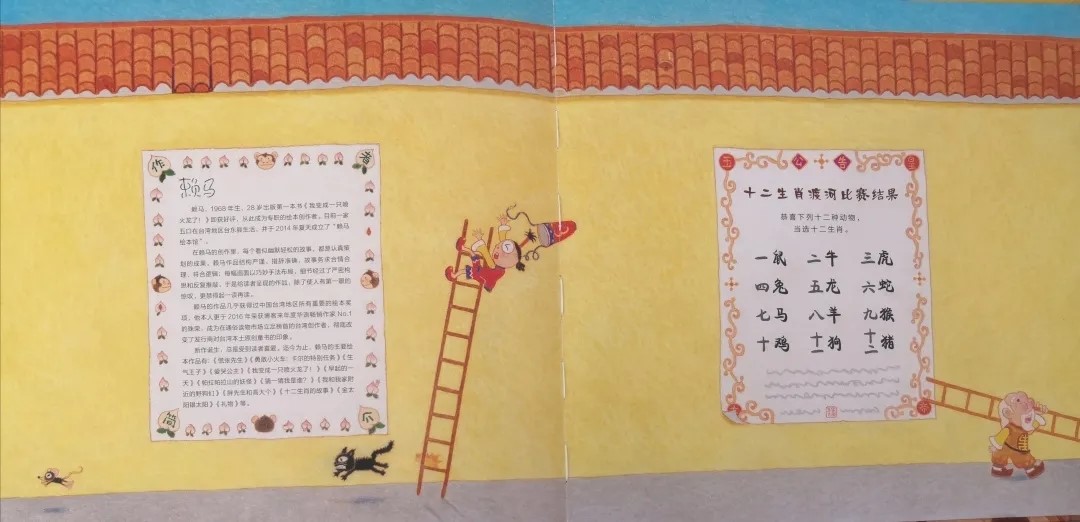 作者
赖马
赖马，1968年生，28岁出版第一本书《我变成一只喷
火龙了！》即获好评，从此成为专职的绘本创作者。目前一家
五口在台东台湾地区生活，并于2014年夏天成立了“赖马
绘本馆”。
在赖马的创作里，每个看似幽默轻松的故事，都是认真策
划的成果。赖马作品结构严谨，措辞准确，故事务求合情合
理、符合逻辑；每幅画面以巧妙手法布局，细节经过了严密构
思和反复推敲，于是给读者呈现的作品，除了使人有第一眼的
惊叹，更禁得起一读再读。
赖马的作品几乎获得过中国台湾地区所有重要的绘本奖
项，他本人更于2016年荣获博客来年度华语畅销作家No.1
的殊荣，成为在通俗读物市场立足榜首的台湾创作者，彻底改
变了发行商对台湾本土原创童书的印象。
新作诞生，总是受到读者喜爱。迄今为止，赖马的主要绘
本作品有：《慌张先生》《勇敢小火车：卡尔的特别任务》《生
气王子》《爱哭公主》《我变成一只喷火龙了！》《早起的一
天》《帕拉帕拉山的妖怪》《猜一猜我是谁？》《我和我家附
近的野狗们》《胖先生和高大个》《十二生肖的故事》《金太
阳银太阳》《礼物》等。
简介
王公告
十二生肖渡河比赛结果
恭喜下列十二种动物，
当选十二生肖。
一鼠 二牛 三虎
四兔 五龙 六蛇
七马 八羊 九猴
十鸡 十一狗 十二猪